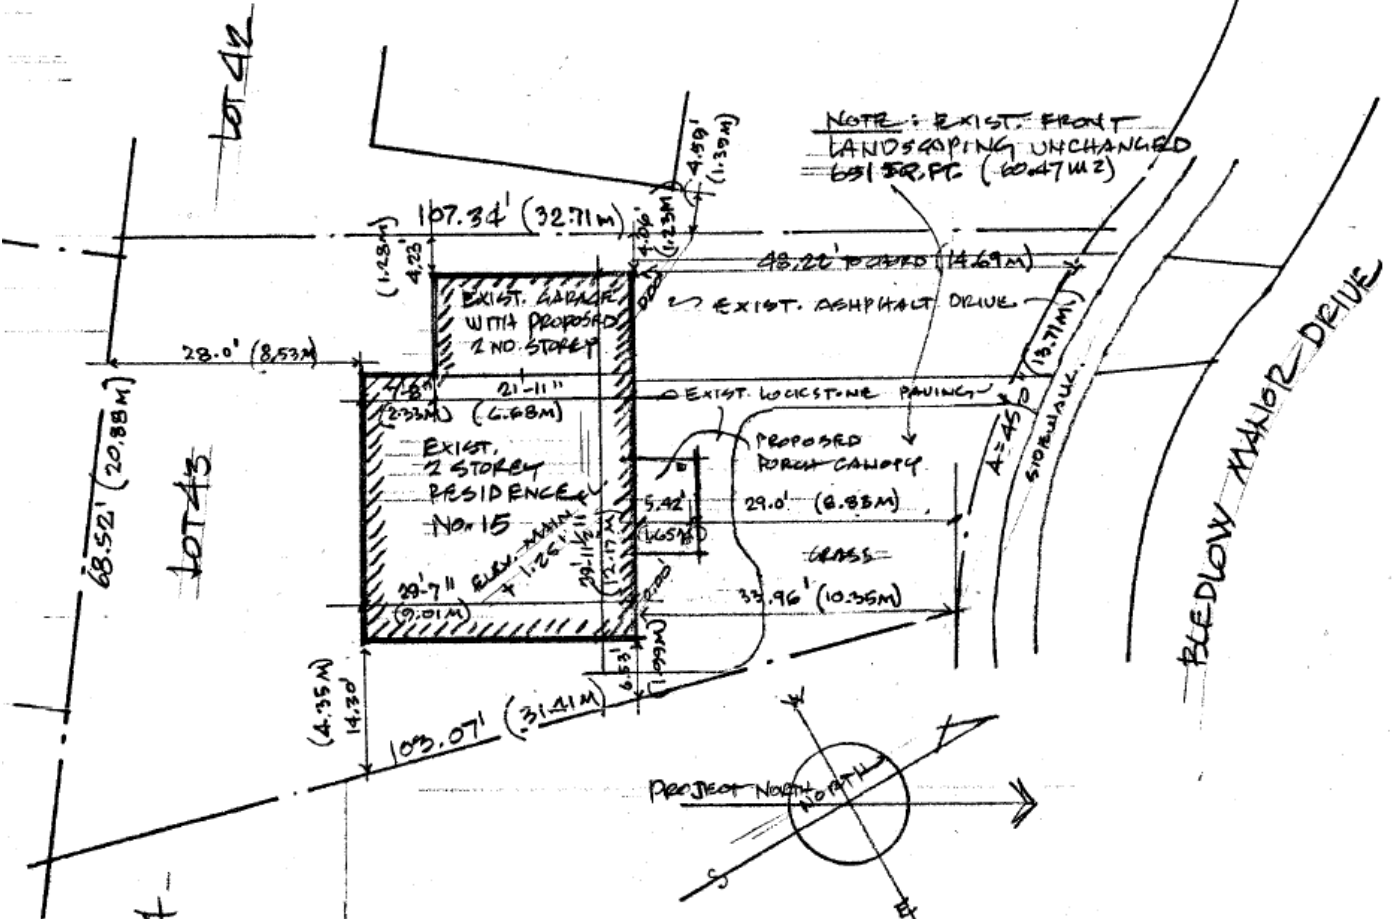 LOT 42
NOTE: EXIST. FRONT
LANDSCAPING UNCHANGED
651 SQ.FT. (60.47M2)
4.58'
(1.39M)
107.34' (32.71M)
(1.28M)
4.23'
4.06'
(1.23M)
48.22' TO CHORD (14.69M)
EXIST. GARAGE
WITH PROPOSED
2ND STOREY
EXIST. ASHPHALT DRIVE
28.0' (8.53M)
7'-8"
(2.33M)
21'-11"
(6.68M)
EXIST. LOCKSTONE PAVING
A=45.0' (13.71M)
SIDEWALK
BLEDLOW MANOR DRIVE
68.52' (20.88M)
LOT 43
EXIST.
2 STOREY
RESIDENCE
No. 15
PROPOSED
PORCH CANOPY
5.42'
(1.65M)
29.0' (8.83M)
ELEV. MAIN
+1.25'
39'-11 1/2"
(12.17M)
GRASS
29'-7"
(9.01M)
33.96' (10.35M)
6.53'
(1.99M)
(4.35M)
14.30'
103.07' (31.41M)
PROJECT NORTH
NORTH
W
S
E